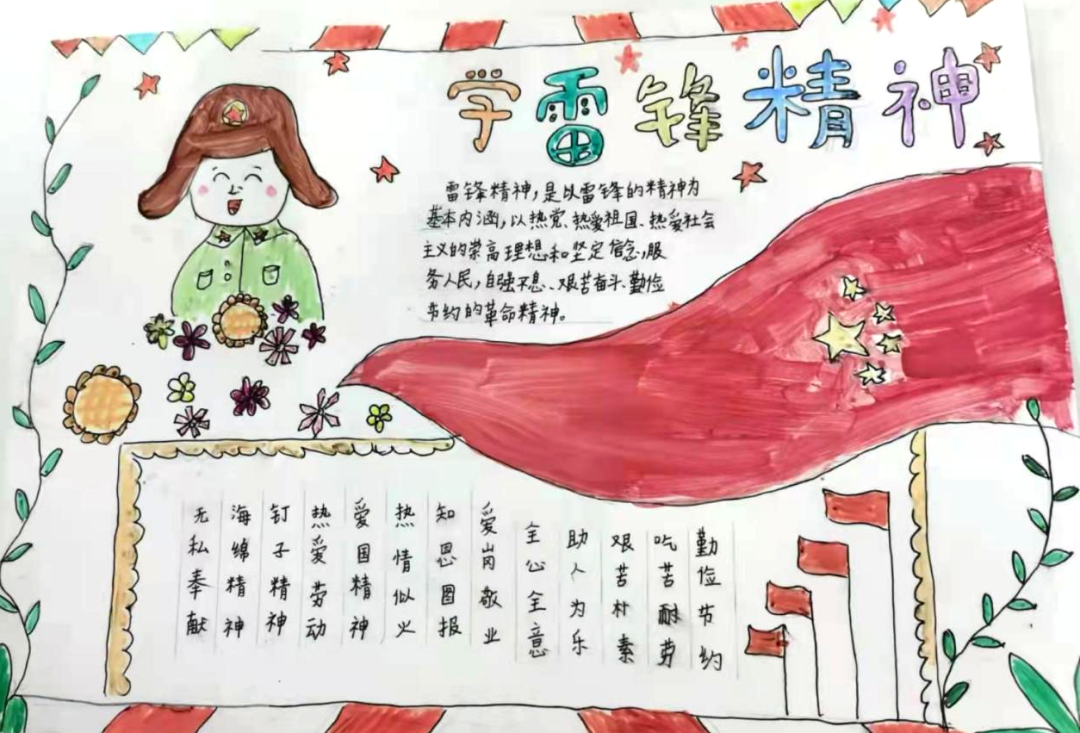 学雷锋精神
雷锋精神，是以雷锋的精神为
基本内涵，以热党、热爱祖国、热爱社会
主义的崇高理想和坚定信念，服
务人民，自强不息、艰苦奋斗、勤俭
节约的革命精神。
无私奉献
海绵精神
钉子精神
热爱劳动
爱国精神
热情似火
知恩图报
爱岗敬业
全心全意
助人为乐
艰苦朴素
吃苦耐劳
勤俭节约